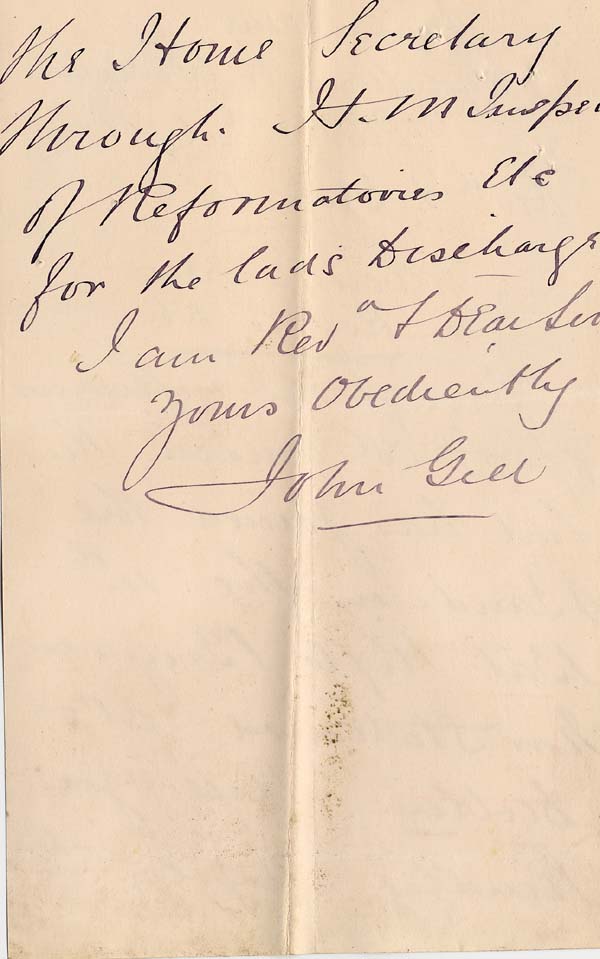 the Home Secretary
through. H.M Inspe
of Reformatories Etc
for the lad's Discharge
I am Revd & Dear Sir
Yours Obediently
John Gill